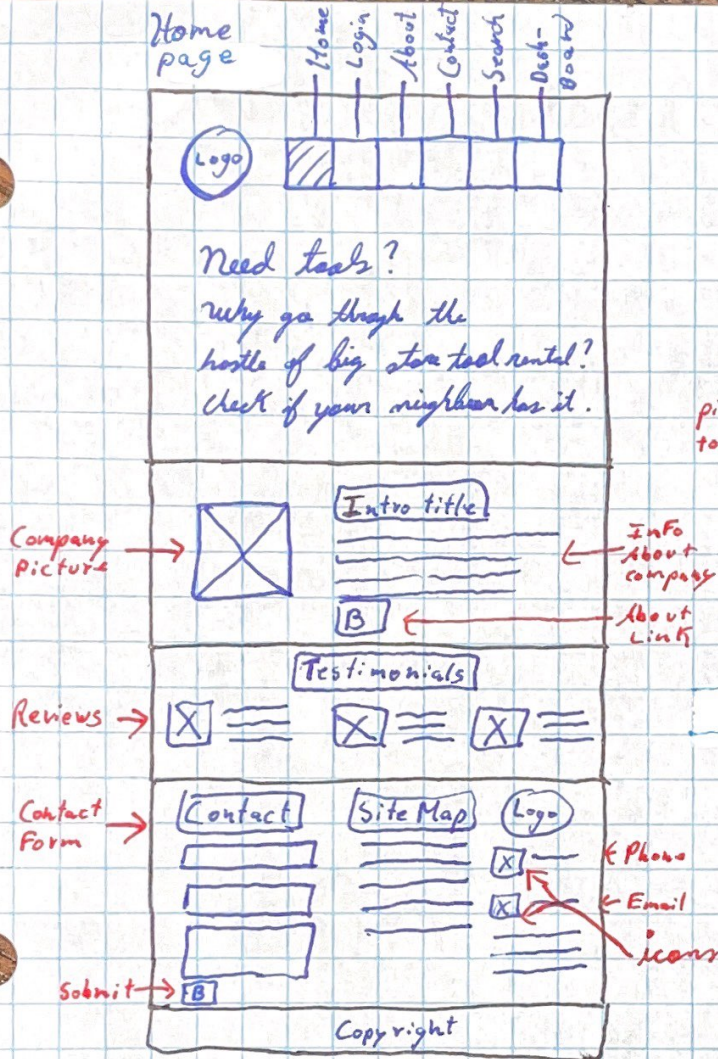 Home
page
Home
Login
About
Contact
Search
Dash-
Board
Logo
Need tools?
Why go throgh the
hastle of big store tool rental?
Check if your neighbour has it.
Intro title
Company
Picture
Info
About
company
B
About
Link
Testimonials
Reviews
Contact
Form
Contact
Site Map
Logo
Phone
Email
icons
Submit
B
Copyright